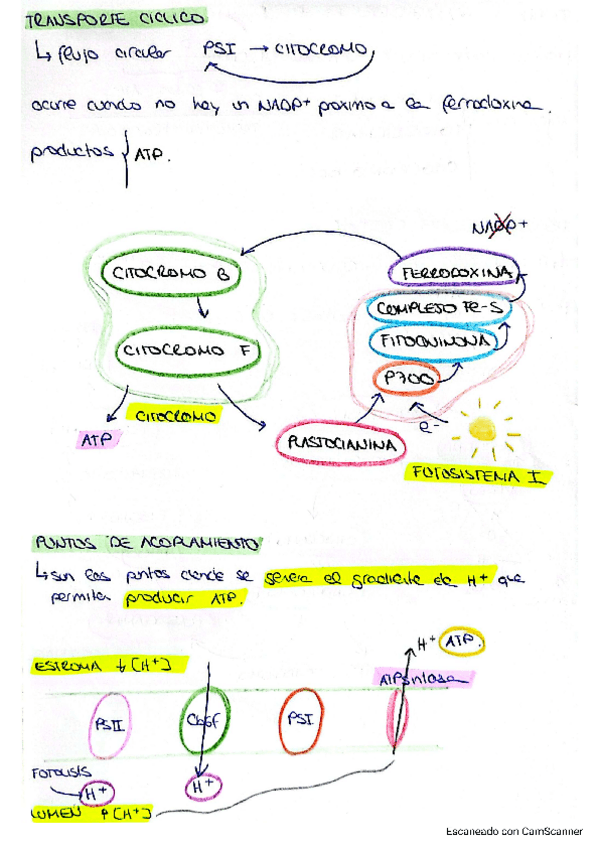 TRANSPORTE CICLICO
↳ flujo circular PSI → CITOCROMO
ocurre cuando no hay un NADP+ proximo a la ferrodoxina.
productos { ATP.
NADP+
CITOCROMO B
FERRODOXINA
COMPLEJO Fe-S
CITOCROMO F
FITOQUINONA
P700
CITOCROMO
e-
ATP
PLASTOCIANINA
FOTOSISTEMA I
PUNTOS DE ACOPLAMIENTO
↳ son los puntos donde se genera el gradiente de H+ que
permiten producir ATP.
H+ ATP.
ESTROMA ↓ [H+]
ATPsintasa
PSII
Cb6f
PSI
FOTOLISIS
H+
H+
LUMEN ↑ [H+]
Escaneado con CamScanner